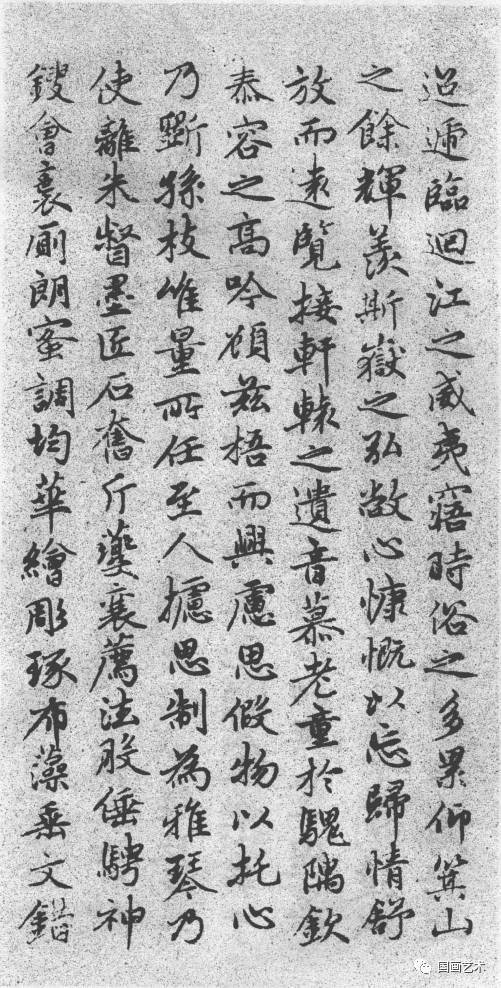 迢遞臨迴江之威夷寤時俗之多累仰箕山
之餘輝羨斯嶽之弘敞心慷慨以忘歸情舒
放而遠覽接軒轅之遺音慕老童於騩隅欽
泰容之高吟顧茲梧而興慮思假物以托心
乃斲孫枝准量所任至人攄思制為雅琴乃
使離朱督墨匠石奮斤夔襄薦法般倕騁神
鎪會裛廁朗密調均華繪彫琢布藻垂文錯
国画艺术